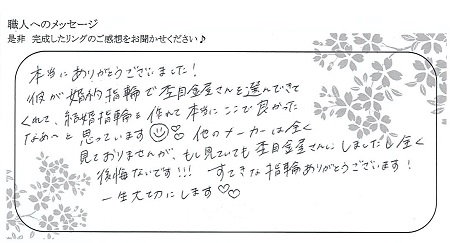 職人へのメッセージ
是非 完成したリングのご感想をお聞かせください♪
本当にありがとうございました！
彼が婚約指輪で杢目金屋さんを選んできて
くれて、結婚指輪も作れて本当にここで良かった
なあ〜と思っています☺♡ 他のメーカーは全く
見ておりませんが、もし見ていても杢目金屋さんにしましたし全く
後悔ないです!!! すてきな指輪ありがとうございます！
一生大切にします♡♡